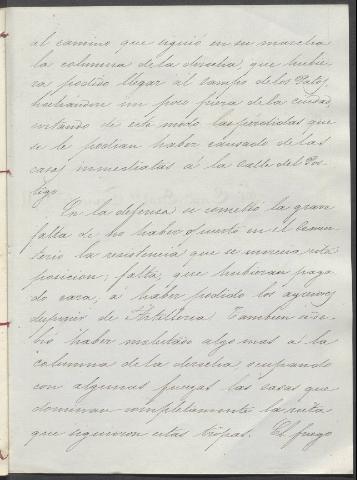 al camino que siguió en su marcha
la columna de la derecha, que hubie
ra podido llegar al campo de los Patos,
hallándose un poco fuera de la ciudad
evitando de este modo las pérdidas que
se le podian haber causado de las
casas inmediatas á la Calle del Pos-
tigo.
En la defensa se cometió la gran
falta de no haber puesto en el Cemen-
terio la resistencia que se merecia esta
posicion; falta, que hubieran paga
do cara, a haber podido los agresores
disponer de Artilleria. Tambien de
bió haber molestado algo mas a la
columna de la derecha, ocupando
con algunas fuerzas las casas que
dominan completamente la ruta
que siguieron estas tropas. El fuego